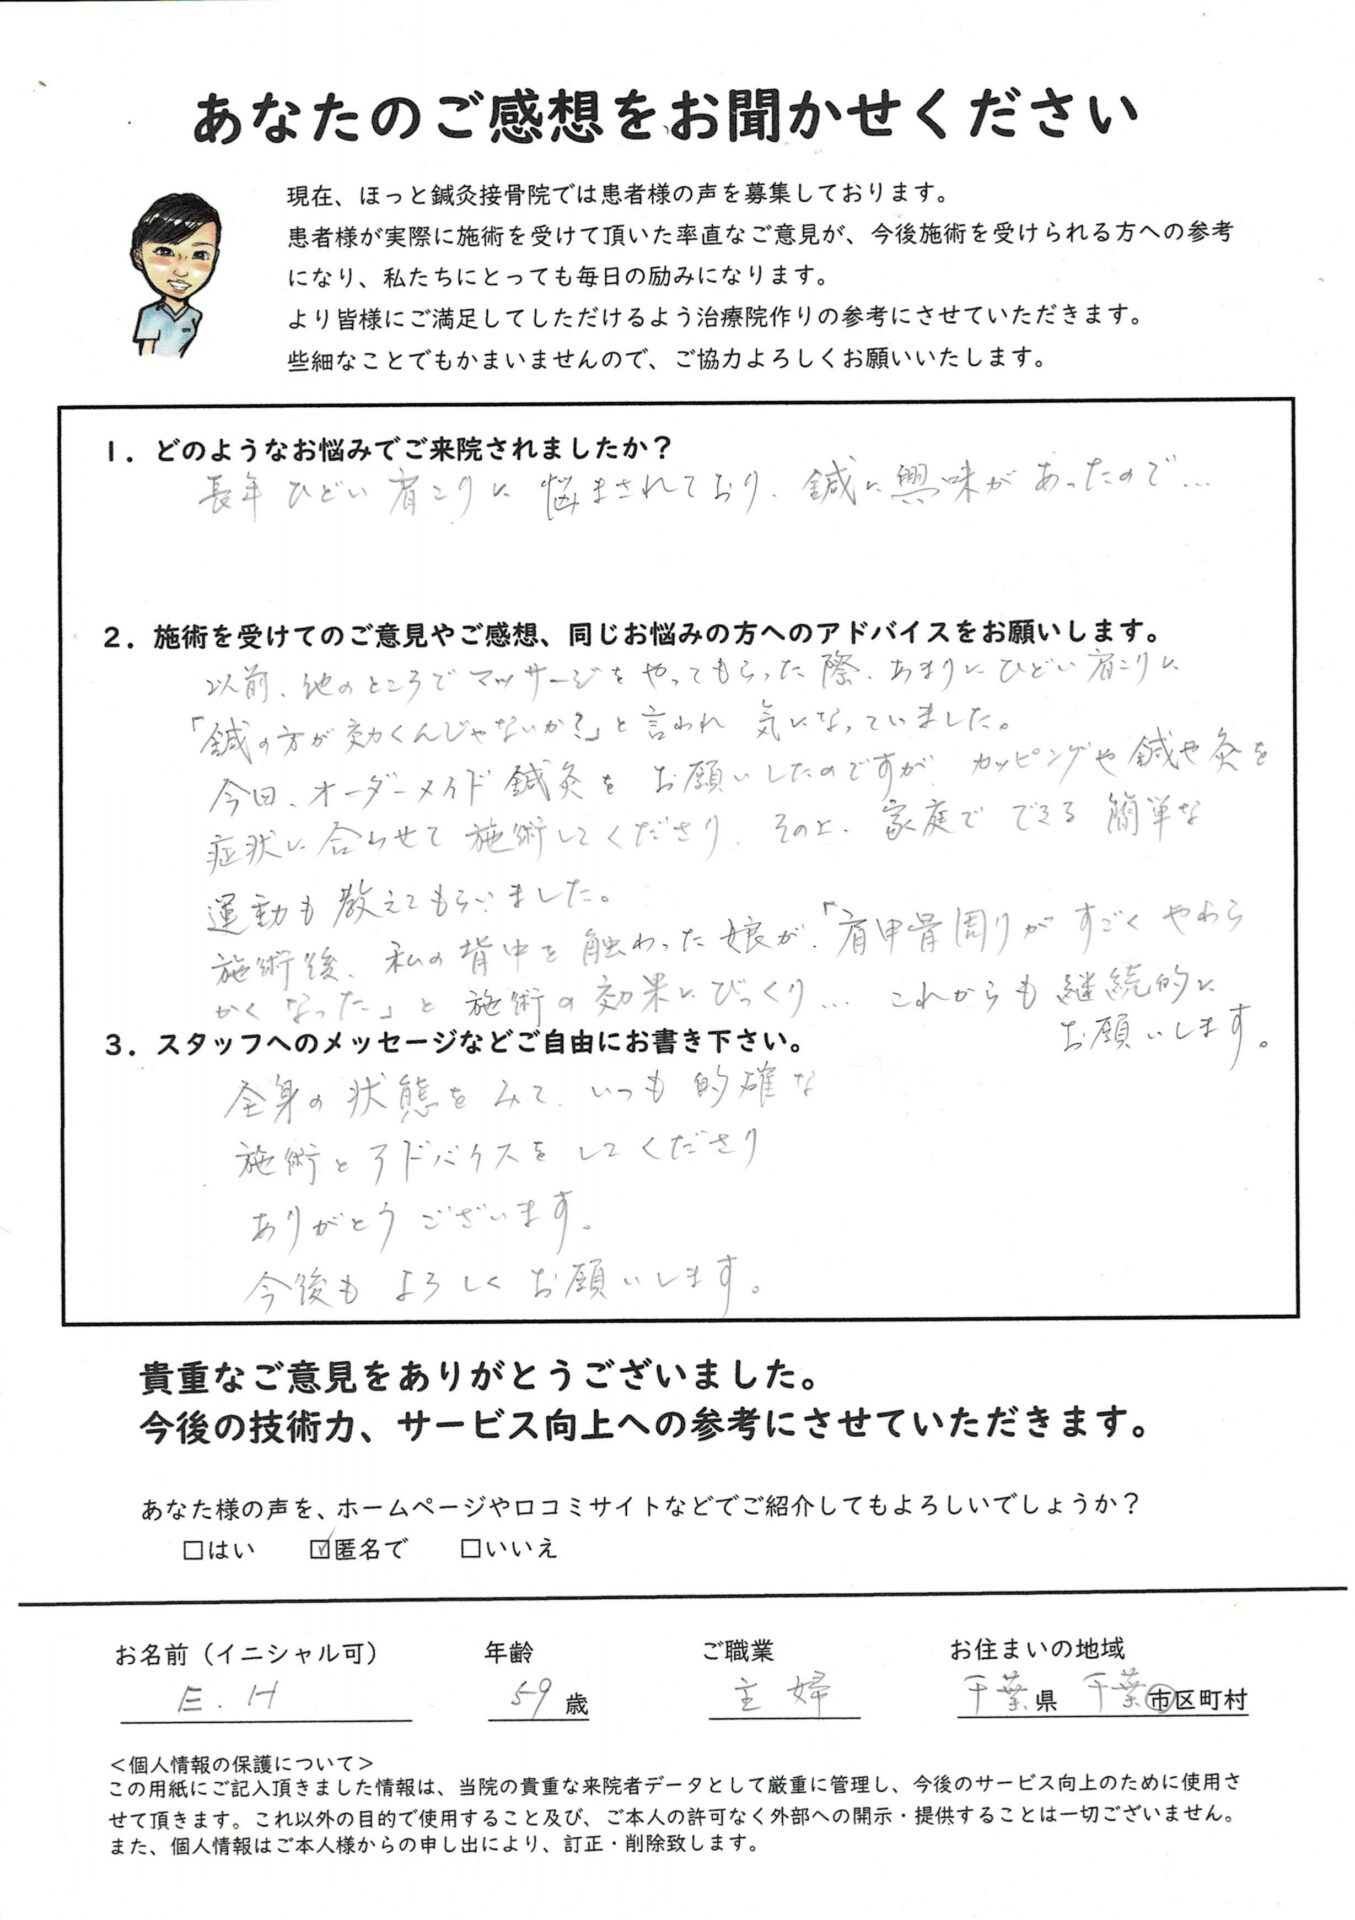 あなたのご感想をお聞かせください
現在、ほっと鍼灸接骨院では患者様の声を募集しております。
患者様が実際に施術を受けて頂いた率直なご意見が、今後施術を受けられる方への参考
になり、私たちにとっても毎日の励みになります。
より皆様にご満足してしただけるよう治療院作りの参考にさせていただきます。
些細なことでもかまいませんので、ご協力よろしくお願いいたします。
1．どのようなお悩みでご来院されましたか？
長年ひどい肩こりに悩まされており、鍼に興味があったので…
2．施術を受けてのご意見やご感想、同じお悩みの方へのアドバイスをお願いします。
以前、他のところでマッサージをやってもらった際、あまりにひどい肩こりに
「鍼の方が効くんじゃないか？」と言われ 気になっていました。
今回、オーダーメイド鍼灸をお願いしたのですが カッピングや鍼や灸を
症状に合わせて施術してくださり、その上、家庭でできる簡単な
運動も教えてもらいました。
施術後、私の背中を触わった娘が、「肩甲骨周りがすごくやわら
かくなった」と施術の効果にびっくり… これからも継続的に
お願いします。
3．スタッフへのメッセージなどご自由にお書き下さい。
全身の状態をみて、いつも的確な
施術とアドバイスをしてくださり
ありがとうございます。
今後もよろしくお願いします。
貴重なご意見をありがとうございました。
今後の技術力、サービス向上への参考にさせていただきます。
あなた様の声を、ホームページや口コミサイトなどでご紹介してもよろしいでしょうか？
□はい ☑匿名で □いいえ
お名前（イニシャル可） 年齢 ご職業 お住まいの地域
E．H 59歳 主婦 千葉県 千葉市区町村
＜個人情報の保護について＞
この用紙にご記入頂きました情報は、当院の貴重な来院者データとして厳重に管理し、今後のサービス向上のために使用さ
せて頂きます。これ以外の目的で使用すること及び、ご本人の許可なく外部への開示・提供することは一切ございません。
また、個人情報はご本人様からの申し出により、訂正・削除致します。